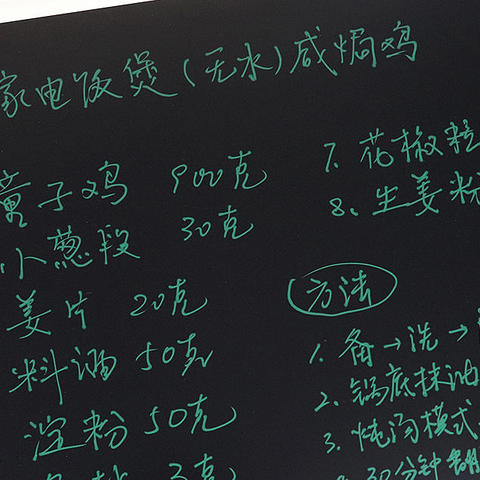 家电饭煲(无水)咸焗鸡
童子鸡 900克
小葱段 30克
姜片 20克
料酒 50克
淀粉 50克
3克
7. 花椒粒
8. 生姜粉
方法
1. 备→洗→
2. 锅底抹油
3. 炖汤模式
30分钟翻